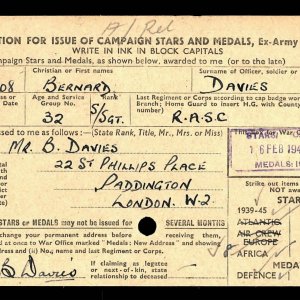 A/ Rel
TION FOR ISSUE OF CAMPAIGN STARS AND MEDALS, Ex-Army
WRITE IN INK IN BLOCK CAPITALS
mpaign Stars and Medals, as shown below, awarded to me (or to the late)
Christian or first Names
Surname of Officer, soldier or
08
BERNARD
DAVIES
Age and Service Group No.
Last Regiment or Corps according to cap badge wor
Branch; Home Guard to insert H.G. with County
32
S/SGT.
R.A.S.C
used to me as follows:— (State Rank, Title, Mr., Mrs. or Miss)
For War
MR. B. DAVIES
22 ST PHILLIPS PLACE
PADDINGTON
LONDON. W.2
16 FEB 194
MEDALS
Strike out items
NOT
STARS or MEDALS may not be issued for SEVERAL MONTHS
address change
nce to War Office marked "Medals: New Address" and showing
dress and (ii) No., name and last Regiment or Corps.
B Davies
If claiming as legatee
or next-of-kin, state
relationship to deceased
STARS
1939-45
ATLANTIC
AIR CREW
EUROPE
AFRICA
MEDA
DEFENCE